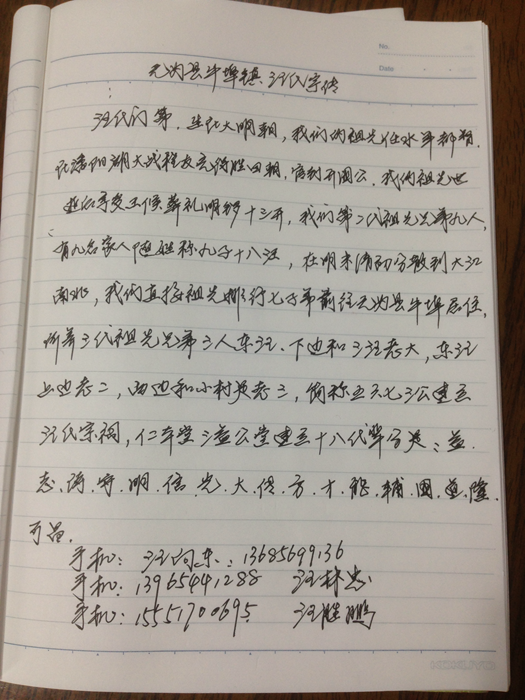 No.
Date
无为县牛埠镇汪氏宗传
汪氏门第，进化大明朝，我们的祖先任水军都督，
在潘阳湖大战程友亮得胜回朝，官封开国公，我们祖先世
享受王候葬礼明锣十三开，我们第二代祖先兄弟九人，
有九名家人随姓称九子十八汪，在明末清初分散到大江
南北，我们直接祖先排行七子弟前往无为县牛埠居住，
所第三代祖先兄弟三人东汪、下边和三汪老大，东汪
上边老二，西边和小村英老三，简称五天七三公建立
汪氏宗祠，仁本堂三益公堂建立十八代辈分是：益.
志.诗.守.明.信.光.大.传.方.才.能.辅.国.道.隆.
万昌.
手机：汪向东：13685699136
手机：13965441288 汪林忠
手机：15551700695 汪胜鹏